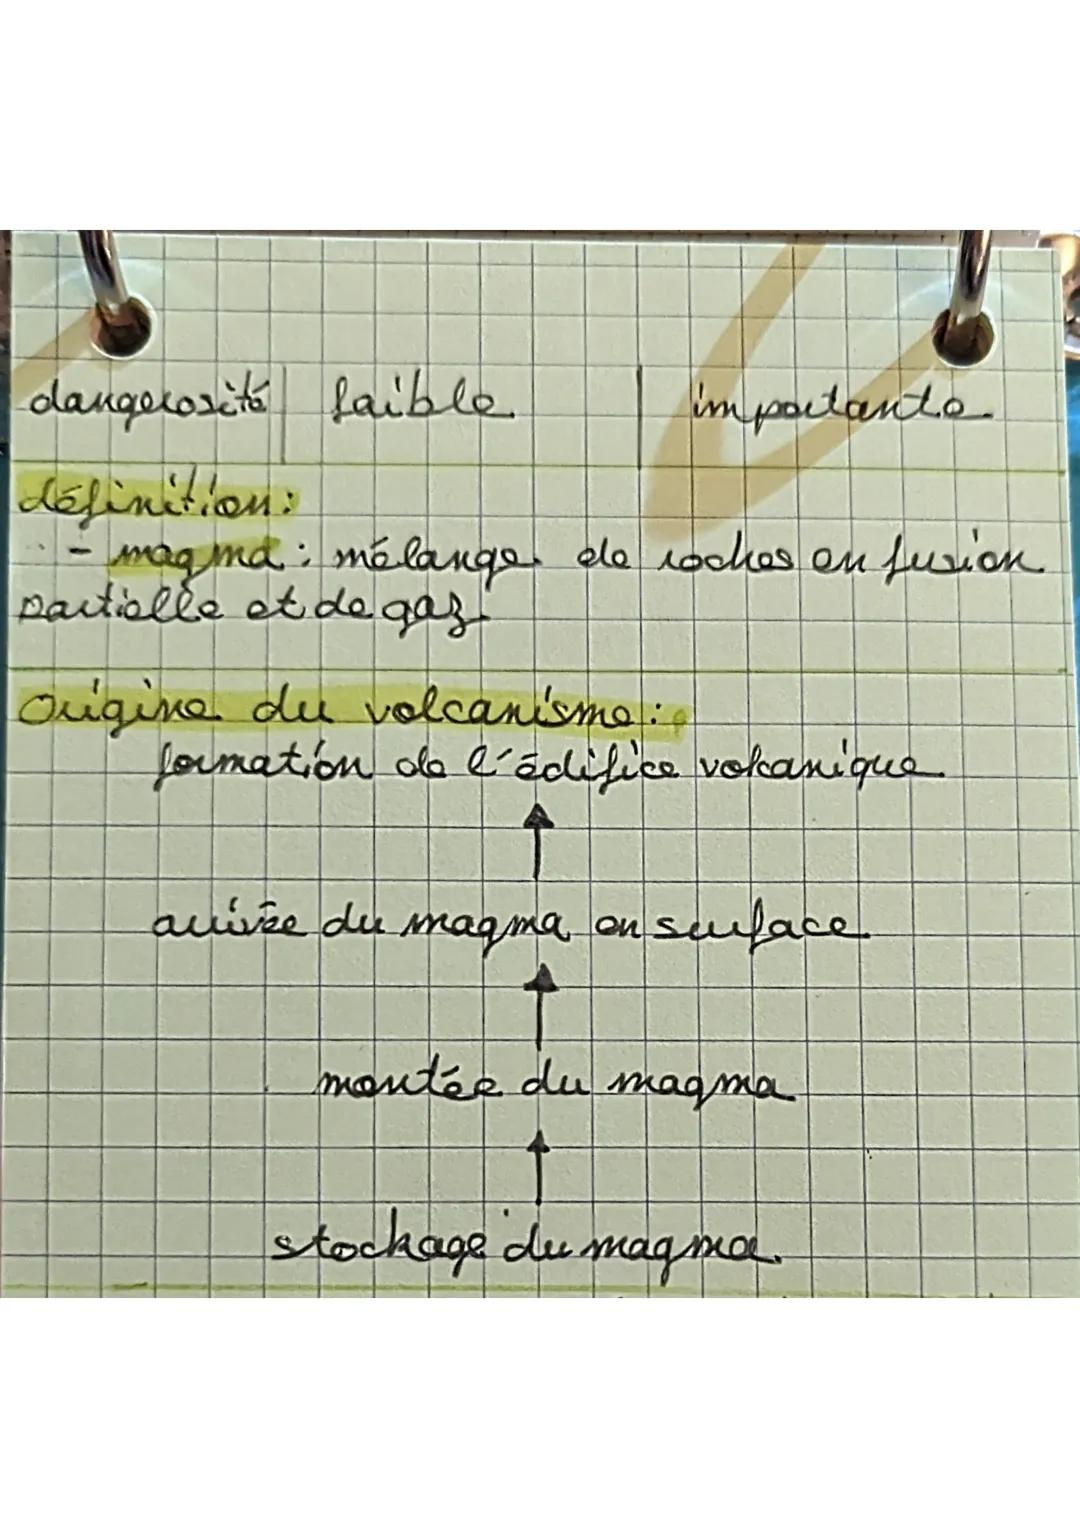 dangerosité faible importante
définition:
- magma : mélange de roches en fusion
partielle et de gaz
Origine du volcanisme :
formation de l'édifice volcanique
↑
arrivée du magma en surface
↑
montée du magma
↑
stockage du magma.